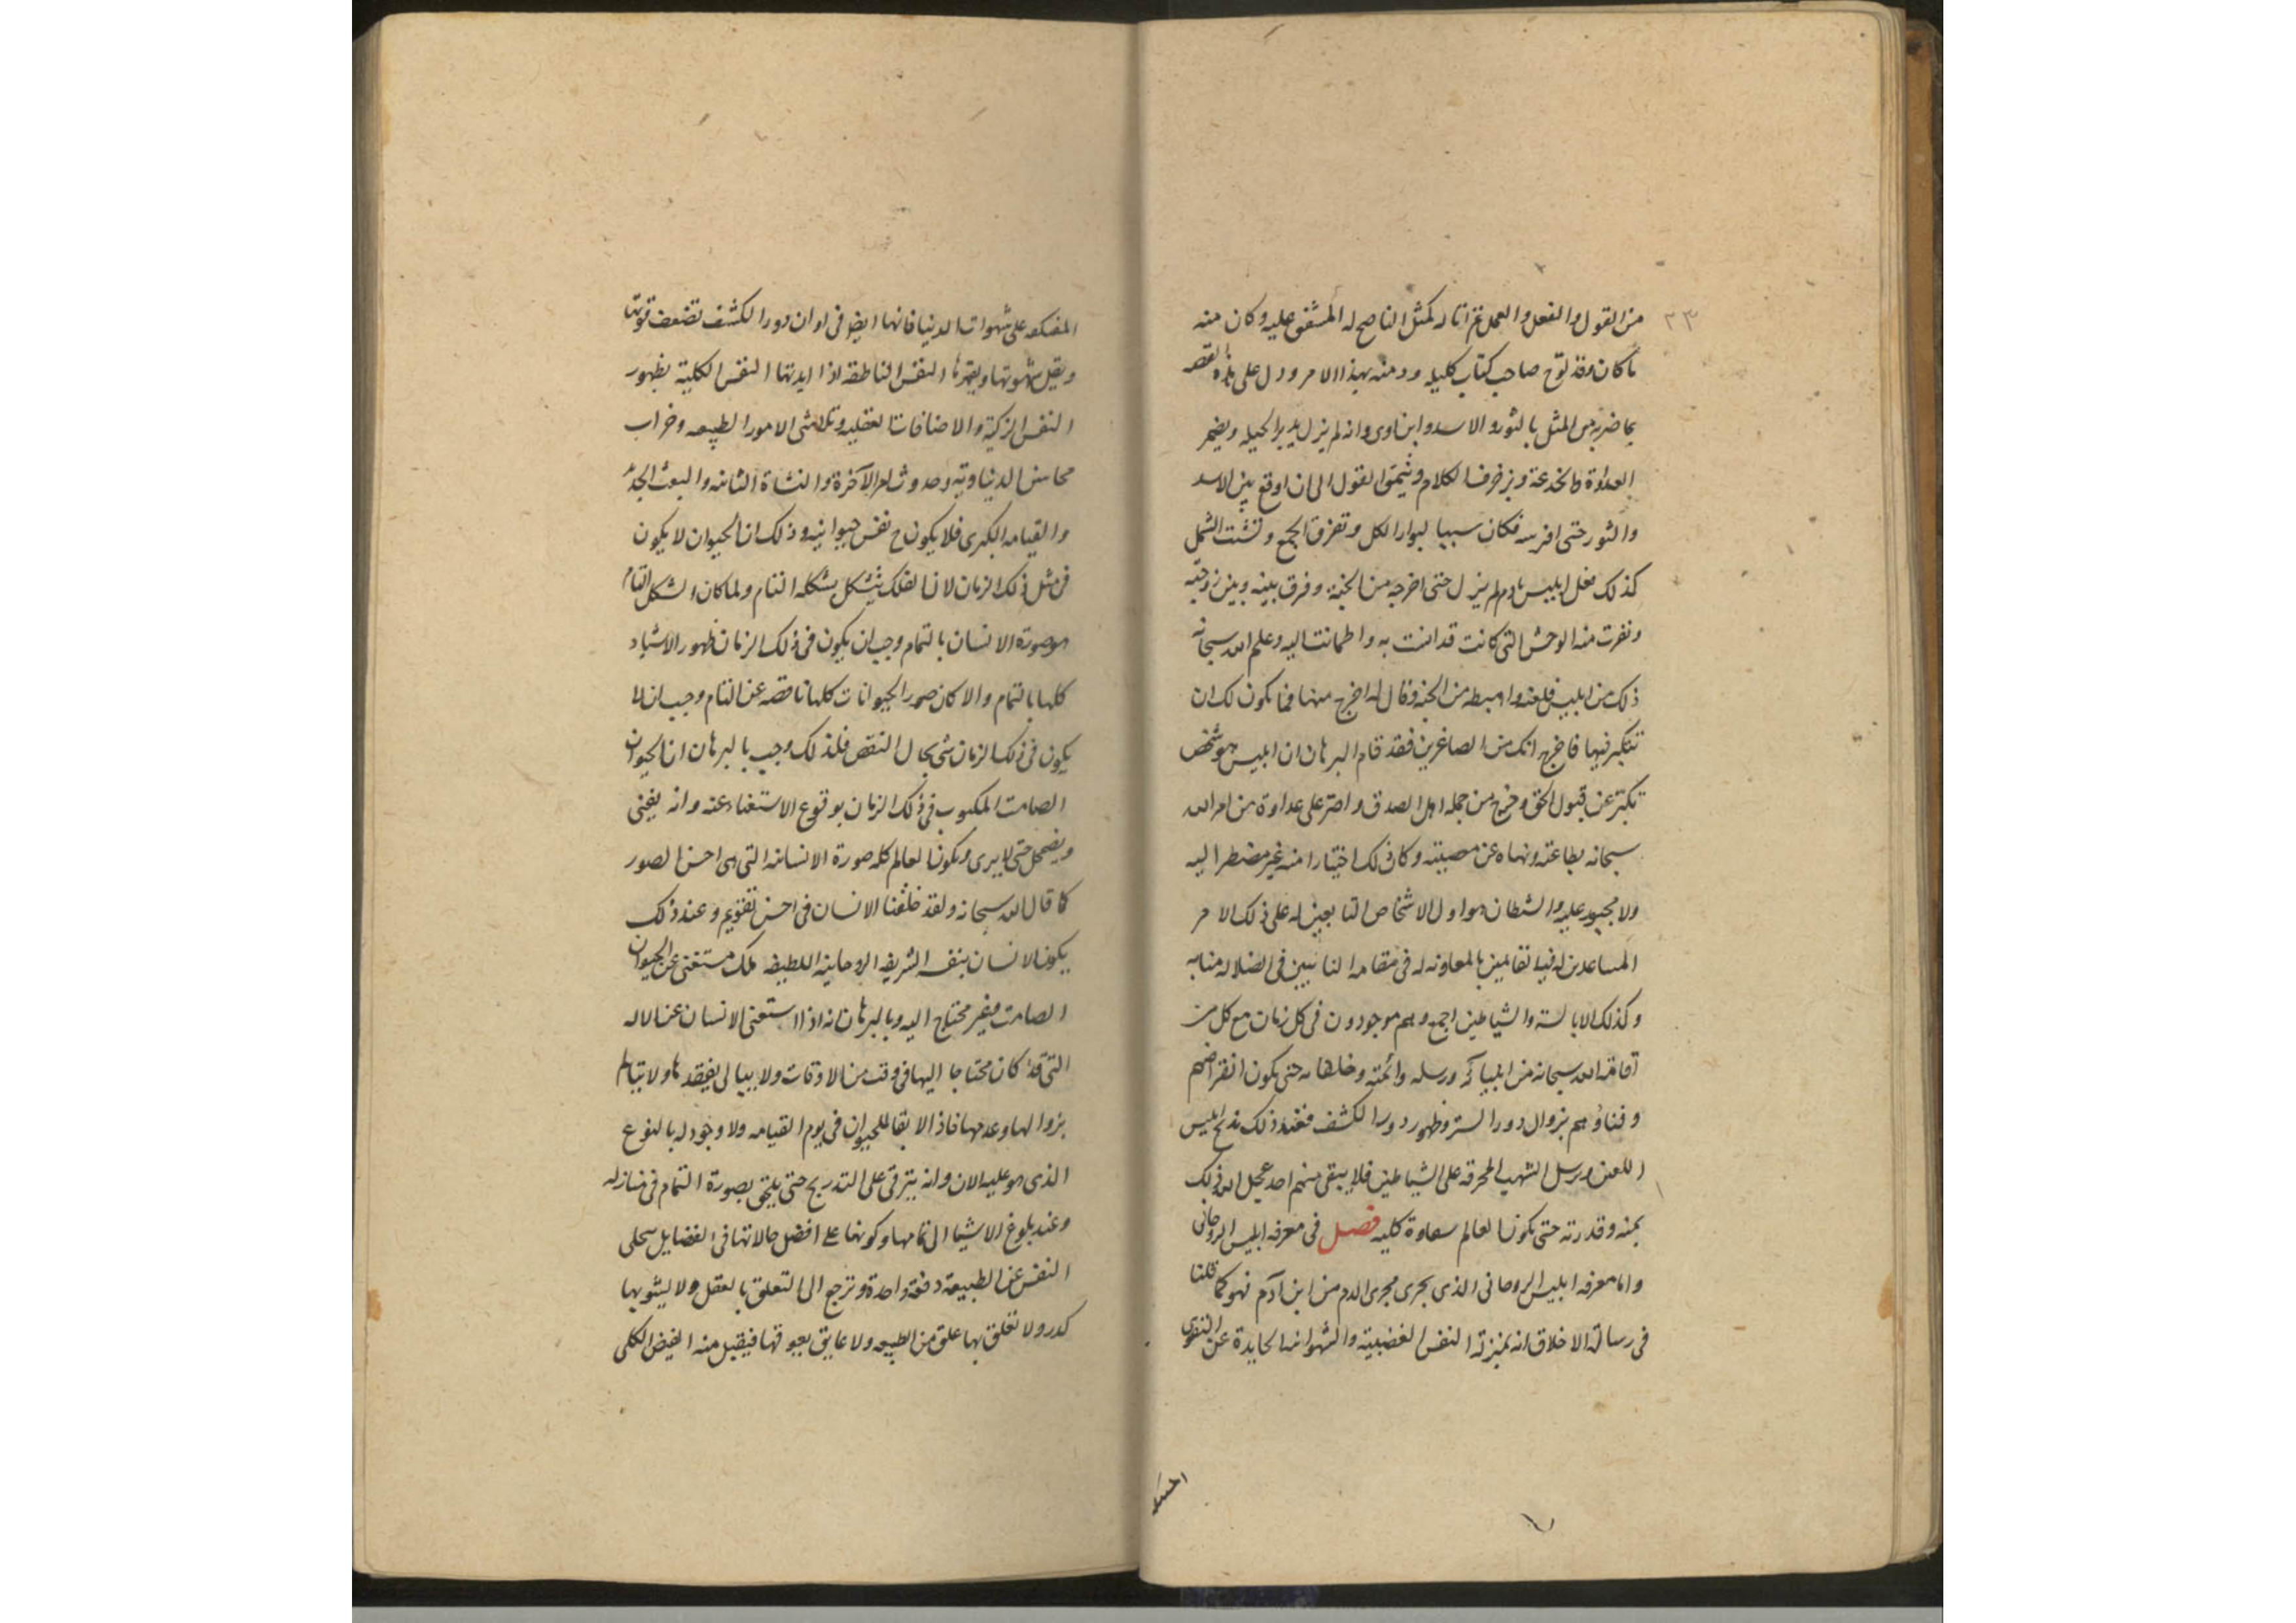 ٢٣
من القول والفعل والعمل ثم اتا له كمثل الناصح له المشفق عليه وكان منه
ما كان وقد لوح صاحب كتاب كليله ودمنه بهذا الامر ودل على هذه القصه
بما ضربه من المثل بالثور والاسد وابن اوى وانه لم يزل يدبر الحيله ويضمر
العداوة والخدعة ويزخرف الكلام وينمق القول الى ان اوقع بين الاسد
والثور حتى افترسه فكان سببا لبوار الكل وتفرق الجمع وتشتت الشمل
كذلك فعل ابليس بادم لم يزل حتى اخرجه من الجنة وفرق بينه وبين زوجته
ونفرت منه الوحش التى كانت قد انست به واطمانت اليه وعلم الله سبحانه
ذلك من ابليس فلعنه واهبطه من الجنه وقال له اخرج منها فما يكون لك ان
تتكبر فيها فاخرج انك من الصاغرين فقد قام البرهان ان ابليس هو شخص
تكبر عن قبول الحق وخرج من جمله اهل الصدق واصر على عداوة من امر الله
سبحانه بطاعته ونهاه عن معصيته وكان ذلك اختيارا منه غير مضطر اليه
ولا مجبور عليه والشطان هو اول الاشخاص التابعين له على ذلك الامر
المساعدين له فيه القايمين بالمعاونه له فى مقامه النائبين فى الضلاله منابه
وكذلك الابالسته والشياطين اجمع وهم موجودون فى كل زمان مع كل من
اقامه الله سبحانه من انبيائه ورسله وائمته وخلفائه حتى يكون انقراضهم
وفناؤهم بزوال دور الستر وظهور دور الكشف فعند ذلك يذبح ابليس
اللعين ويرسل الشهب المحرقه على الشياطين فلا يبقى منهم احد عجل الله ذلك
بمنه وقدرته حتى يكون العالم سعادة كليه فصل فى معرفه ابليس الروحانى
واما معرفه ابليس الروحانى الذى يجرى مجرى الدم من ابن آدم فهو كما قلنا
فى رسالة الاخلاق انه بمنزلة النفس الغضبيته والشهوانيه الحايدة عن التقوى
المنعكفه على شهوات الدنيا فانها ايضا فى اوان دور الكشف تضعف قوتها
ويقل شهوتها ويقهرها النفس الناطقه اذا ايدتها النفس الكلية بظهور
النفس الزكية والاضافات العقليه وتلاشى الامور الطبيعه وخراب
محاسن الدنياوية وحدوث امر الآخرة والنشاة الثانيه والبعث الجديد
والقيامه الكبرى فلا يكون ح نفس حيوانيه وذلك ان الحيوان لا يكون
فى مثل ذلك الزمان لان الفلك يتشكل بشكله التام ولما كان الشكل التام
هو صورة الانسان بالتمام وجب ان يكون فى ذلك الزمان ظهور الاشياء
كلها بالتمام والا كان صور الحيوانات كلها ناقصه عن التام وجب ان لا
يكون فى ذلك الزمان شى بحال النقص فلذلك وجب بالبرهان ان الحيوان
الصامت المكبوب فى ذلك الزمان بوقوع الاستغناء عنه وانه يفنى
ويضمحل حتى لا يرى ويكون العالم كله صورة الانسانيه التى هى احسن الصور
كما قال الله سبحانه ولقد خلقنا الانسان فى احسن تقويم وعند ذلك
يكون الانسان بنفسه الشريفه الروحانيه اللطيفه ملك مستغنى عن الحيوان
الصامت وغير محتاج اليه وبالبرهان انه اذا استغنى الانسان عن الاله
التى قد كان محتاجا اليها فى وقت من الاوقات ولا يبالى بفقدها ولا
بزوالها وعدمها فاذا لا بقا للحيوان فى يوم القيامه ولا وجود له بالنوع
الذى هو عليه الان وانه يترقى على التدريج حتى يلتحق بصورة التمام فى منازله
وعند بلوغ الاشيا الى تمامها وكونها على افضل حالاتها فى الفضايل
النفس عن الطبيعة دفعة واحدة وترجع الى التعلق بالعقل ولا يشوبها
كدر ولا تعلق بها علق من الطبيعه ولا عايق يعوقها فيقبل منه الفيض الكلى